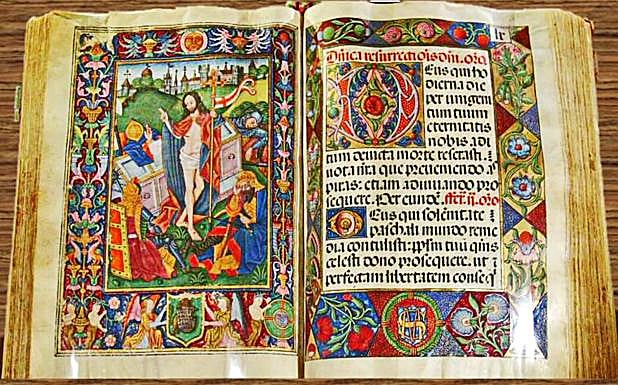 lx
Dn̄ica resurrectiōis dn̄i. orō.
DEus qui ho
dierna die
per unigeni
tum tuum
eternitatis
nobis adi
tum devicta morte reserasti:
vota nr̄a que preveniendo as
piras: etiam adiuvando pro
sequere. Per eundē. Fer. ij. orō
DEus qui solēnitate
paschali mundo reme
dia contulisti: pp̄lm tuū q̄s
celesti dono prosequere. ut
perfectam libertatem conseq̄